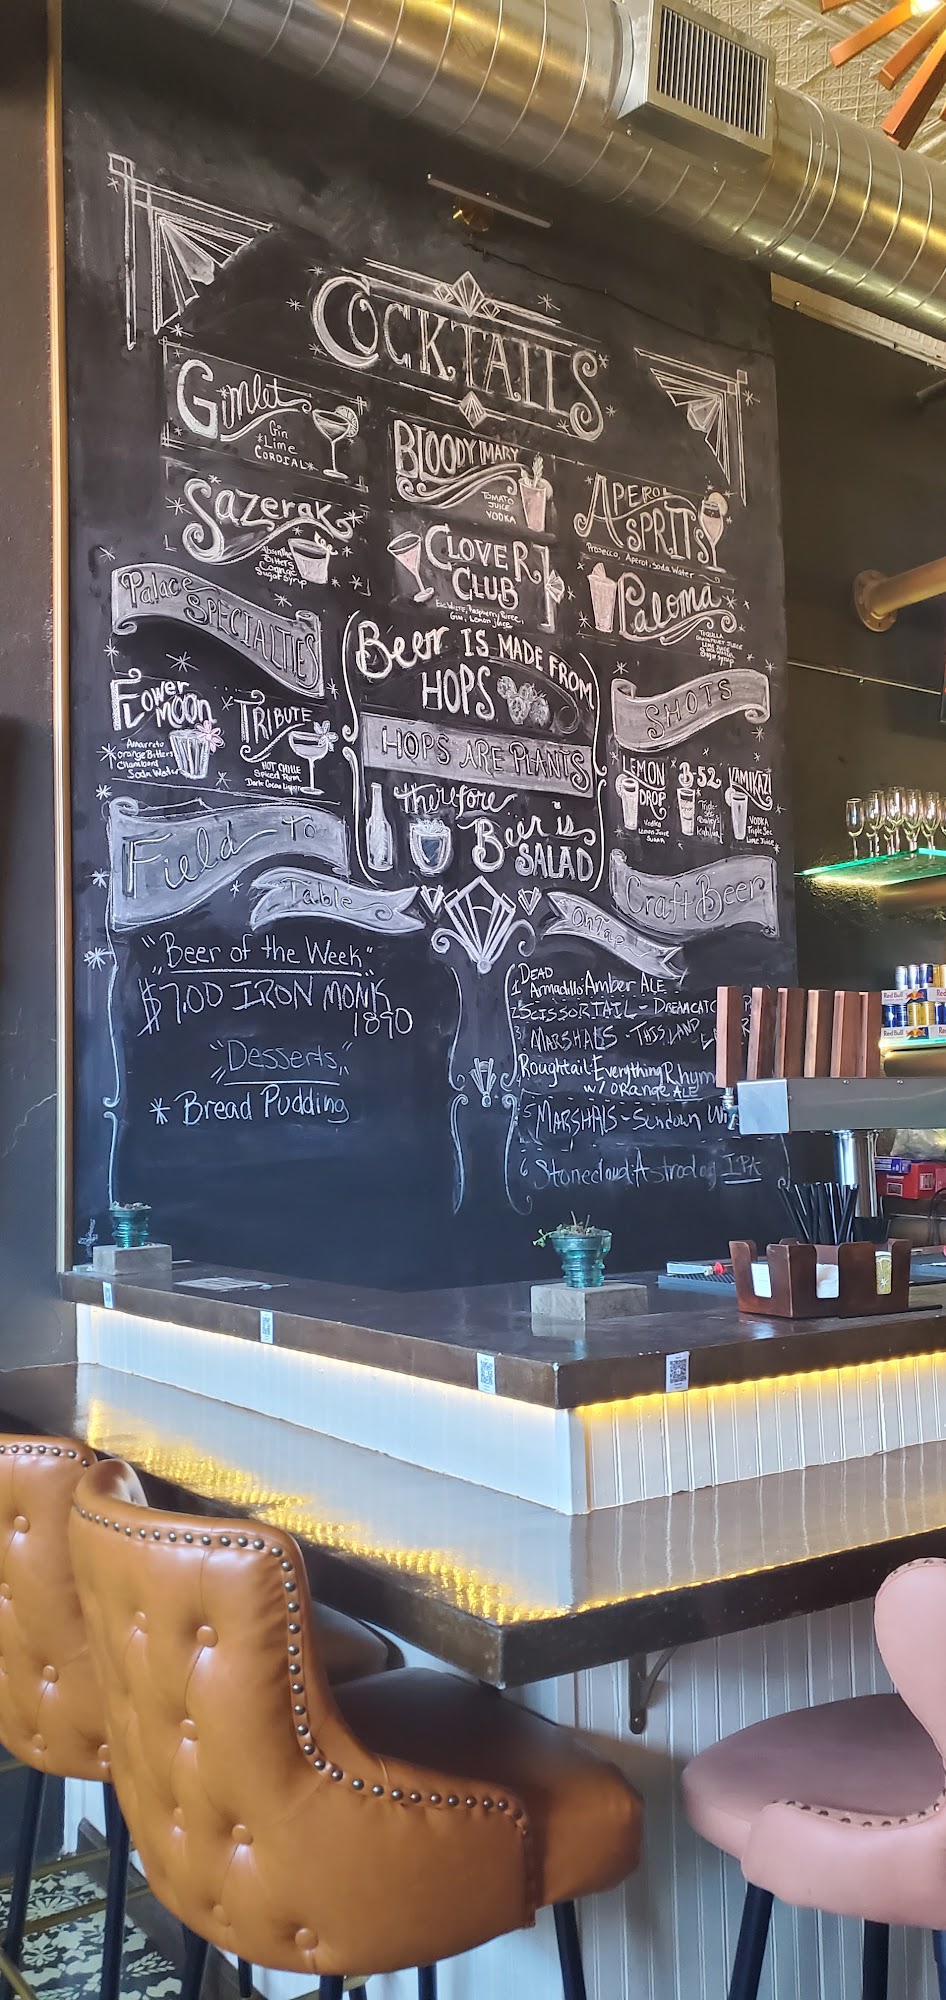 COCKTAILS
Gimlet
Gin
Lime
CORDIAL
BLOODY MARY
TOMATO
JUICE
VODKA
Sazerak
Absinthe
Bitters
Cognac
Sugar Syrup
APEROL
SPRITS
Prosecco, Aperol, Soda Water
CLOVER
CLUB
Gin, Lemon Juice
Paloma
TEQUILLA
GRAPEFRUIT JUICE
LIME JUICE
Sugar Syrup
Palace
SPECIALTIES
Flower
MOON
Amarreto
Orange Bitters
Chambord
Soda Water
TRIBUTE
HOT CHILE
Spiced Rum
Dark Cocoa Liquor
Beer IS MADE FROM
HOPS
HOPS ARE PLANTS
therefore
Beer is
SALAD
SHOTS
LEMON
DROP
Vodka
Lemon Juice
Sugar
B-52
Triple-
Sec
Bailey's
Kahlua
KAMIKAZI
VODKA
Triple Sec
Lime Juice
Field To
Table
"Beer of the Week"
$7.00 IRON MONK
1890
"Desserts"
* Bread Pudding
Craft Beer
On Tap
1 DEAD
Armadillo: Amber ALE
2 SCISSORTAIL - DREAMCATC
3 MARSHALS - THIS LAND
Roughtail: Everything Rhym
w/ ORANGE ALE
5 MARSHALS - Sundown
6 Stonecloud: Astrodog IPA
Red Bull
Red Bull